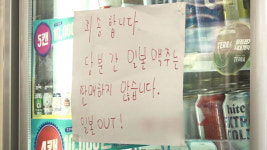 죄송합니다
당분간 일본 맥주는
판매하지 않습니다.
일본 OUT!
5캔
TERRA
hite
EXTRA
COLD